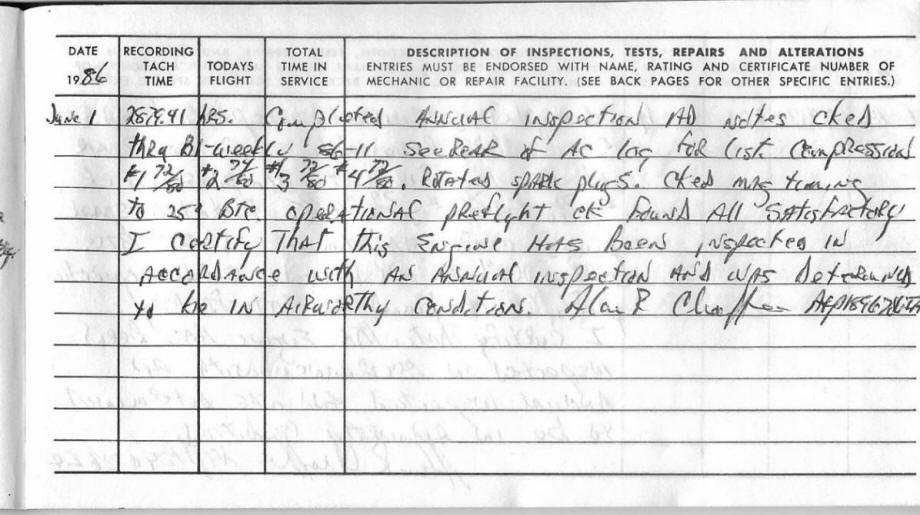 DATE RECORDING TODAYS TOTAL DESCRIPTION OF INSPECTIONS, TESTS, REPAIRS AND ALTERATIONS
TACH FLIGHT TIME IN ENTRIES MUST BE ENDORSED WITH NAME, RATING AND CERTIFICATE NUMBER OF
1986 TIME SERVICE MECHANIC OR REPAIR FACILITY. (SEE BACK PAGES FOR OTHER SPECIFIC ENTRIES.)
June 1 HRS. Completed Annual inspection AD notes cked
thru Bi-weekly 86-11 See Rear of AC log for list Compression
#1 72/80 #2 74/80 #3 72/80 #4 72/80. Rotated spark plugs. Cked mag timing
to 25° BTC operational preflight ck found All Satisfactory
I certify That this Engine Has Been inspected in
accordance with AN Annual inspection And was Determined
to be in Airworthy condition. Alan R